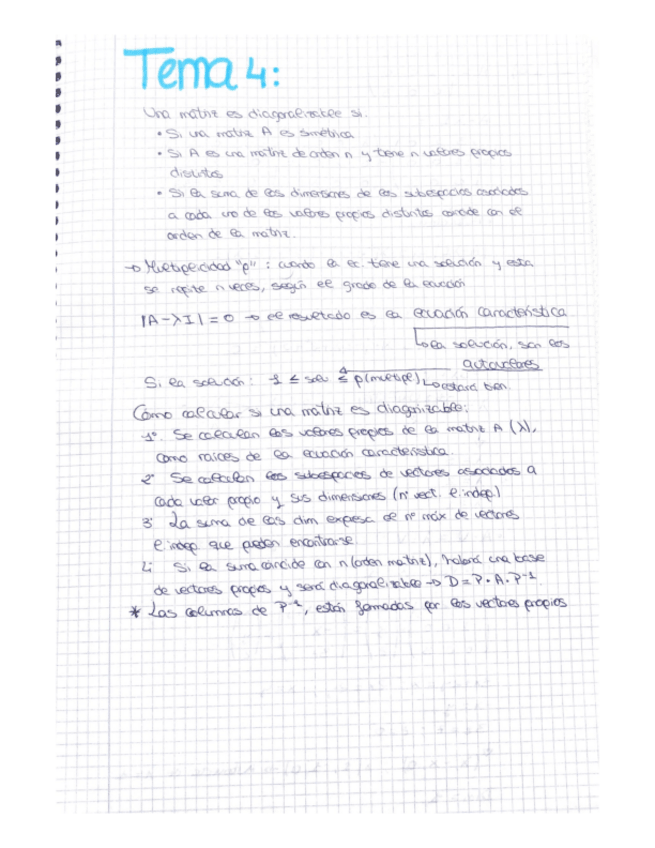 Tema 4:
Una matriz es diagonalizable si:
• Si una matriz A es simétrica
• Si A es una matriz de orden n y tiene n valores propios
distintos
• Si la suma de las dimensiones de los subespacios asociados
a cada uno de los valores propios distintos coincide con el
orden de la matriz.
→ Multiplicidad "p" : cuando la ec. tiene una solución y esta
se repite n veces, según el grado de la ecuación
|A - λI| = 0 → el resultado es la ecuación característica
la solución, son los
autovalores
Si la solución: 1 ≤ sol ≤ p(multipl) estará bien
Cómo calcular si una matriz es diagonizable:
1º Se calculan los valores propios de la matriz A (λ),
como raíces de la ecuación característica.
2º Se calculan los subespacios de vectores asociados a
cada valor propio y sus dimensiones (nº vect. l.indep)
3º La suma de las dim expresa el nº máx de vectores
l.indep que pueden encontrarse
4º Si la suma coincide con n (orden matriz), habrá una base
de vectores propios y será diagonalizable → D = P · A · P⁻¹
* Las columnas de P⁻¹, están formadas por los vectores propios